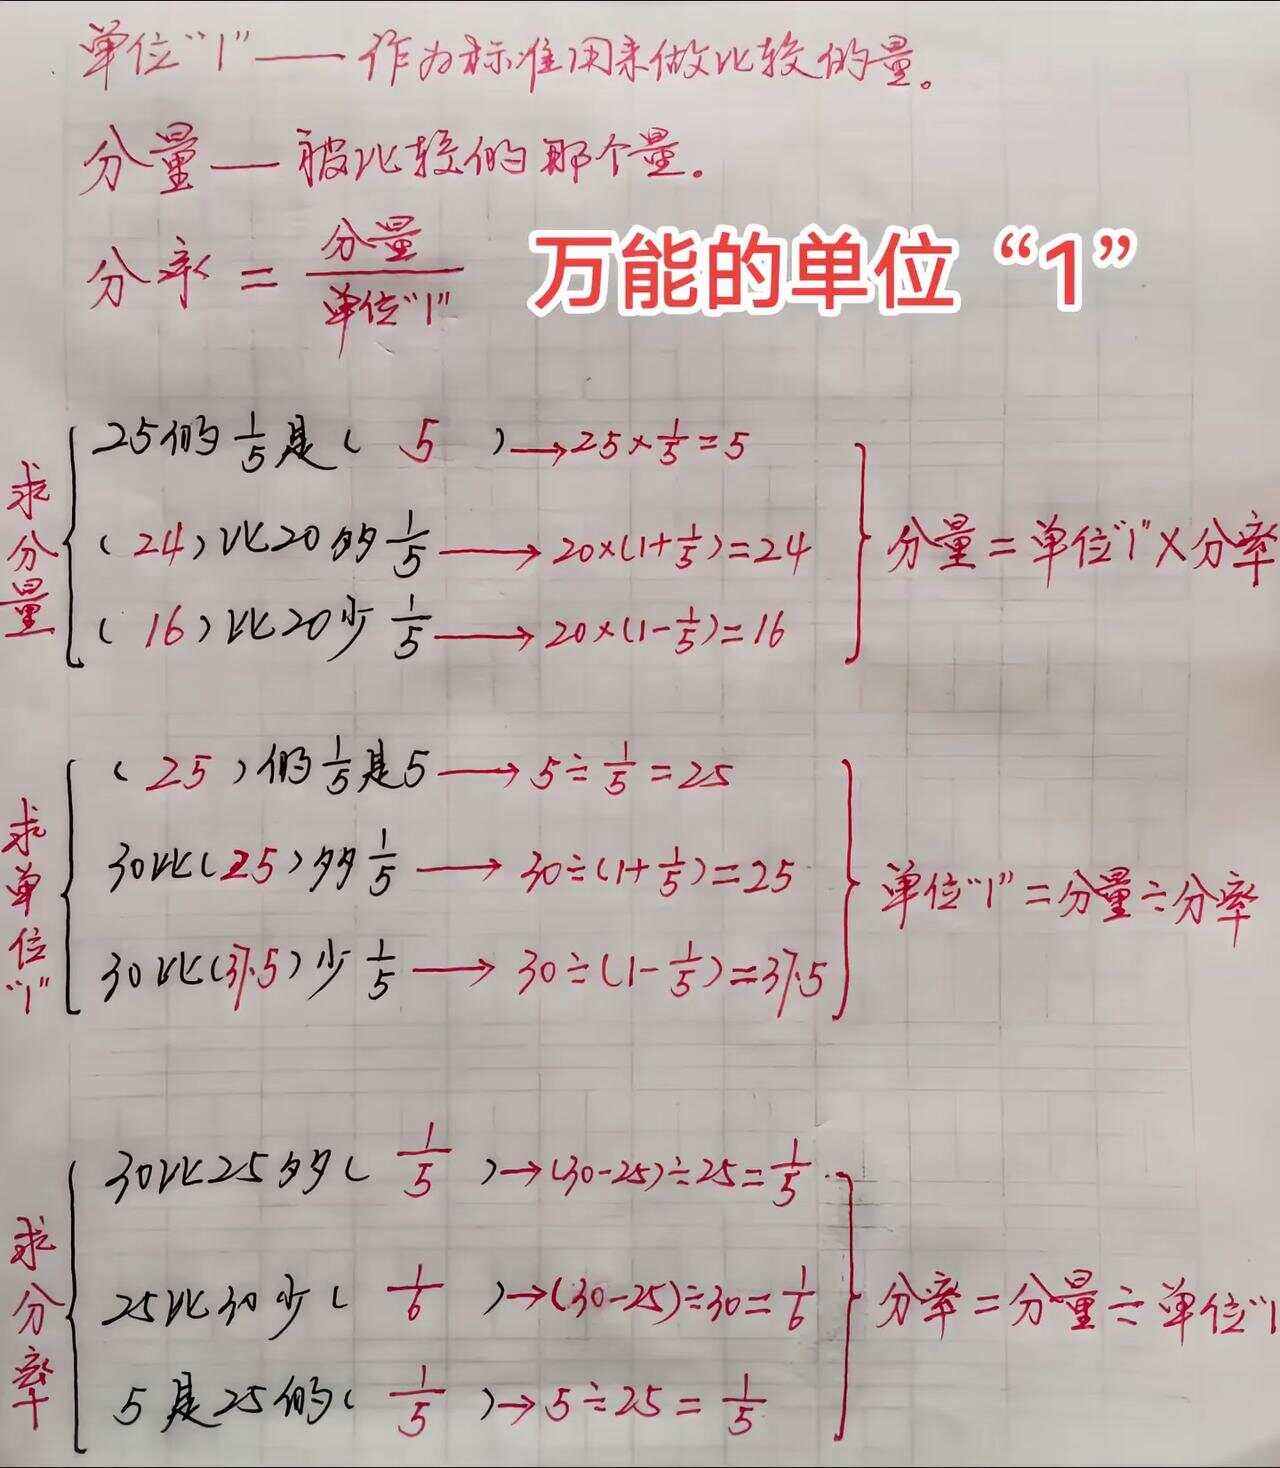 单位“1”——作为标准用来做比较的量。
分量——被比较的那个量。
分率=分量/单位“1”
万能的单位“1”
求分量
25的1/5是( 5 )→25×1/5=5
(24)比20多1/5→20×(1+1/5)=24
(16)比20少1/5→20×(1-1/5)=16
分量=单位“1”×分率
求单位“1”
(25)的1/5是5→5÷1/5=25
30比(25)多1/5→30÷(1+1/5)=25
30比(37.5)少1/5→30÷(1-1/5)=37.5
单位“1”=分量÷分率
求分率
30比25多(1/5)→(30-25)÷25=1/5
25比30少(1/6)→(30-25)÷30=1/6
5是25的(1/5)→5÷25=1/5
分率=分量÷单位“1